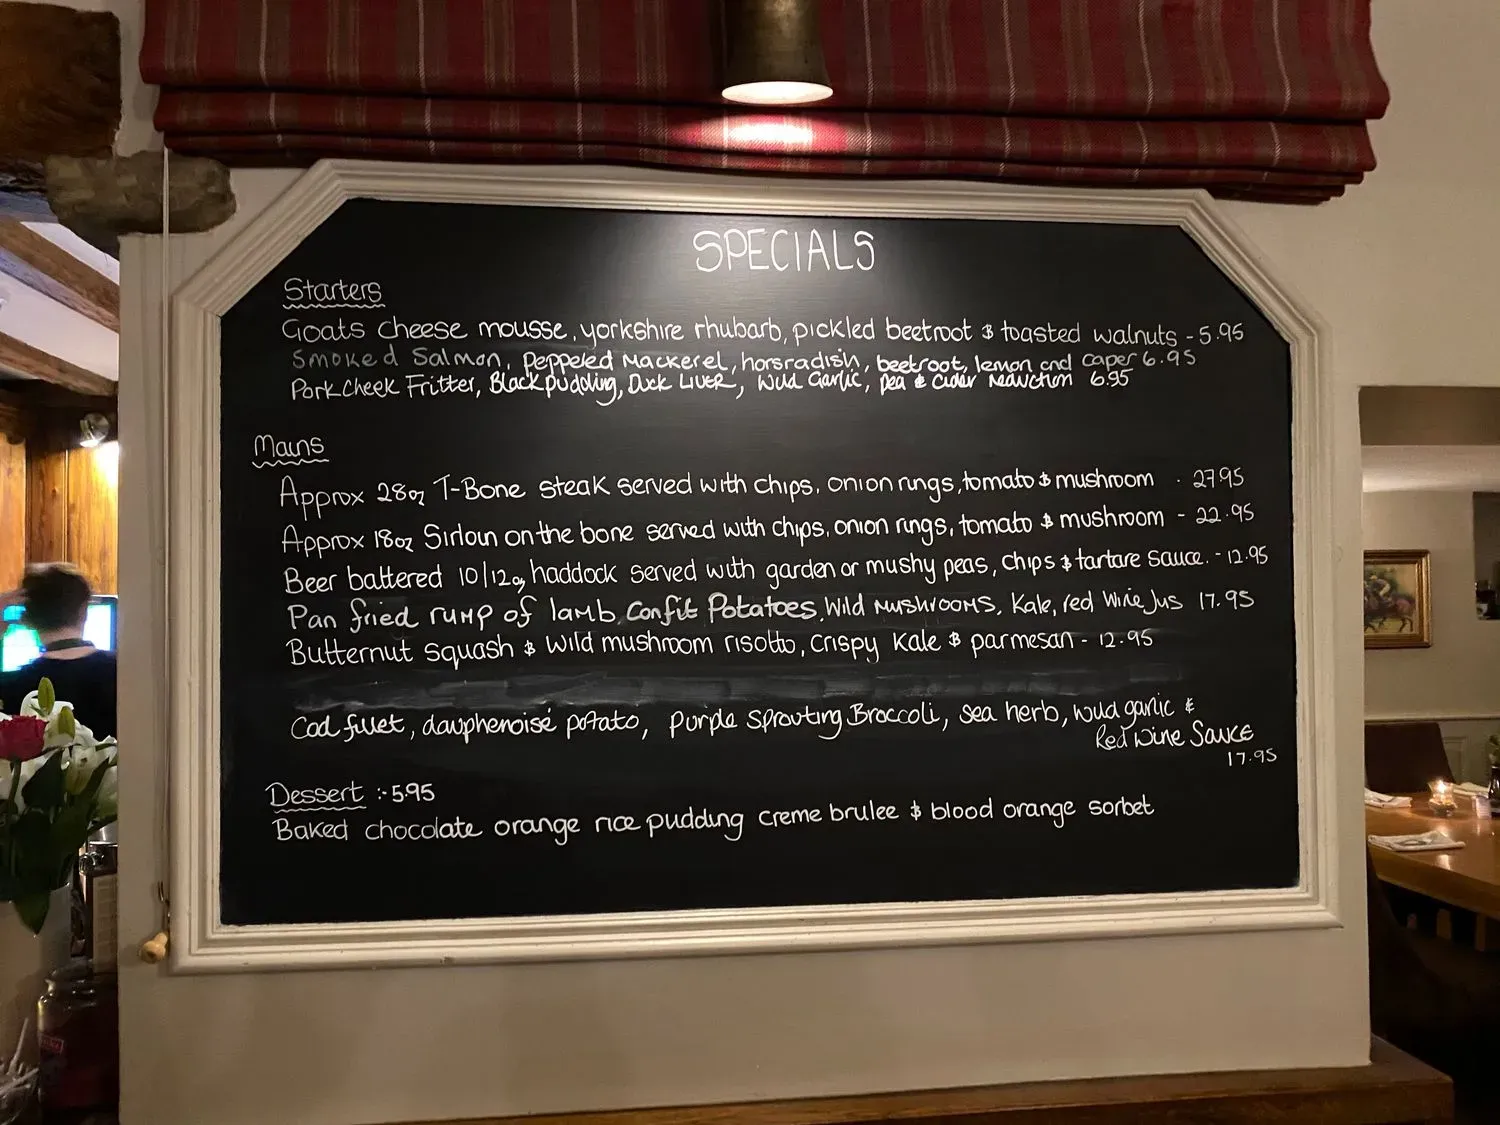 SPECIALS
Starters
Goats cheese mousse, yorkshire rhubarb, pickled beetroot & toasted walnuts - 5.95
Smoked Salmon, Peppered Mackerel, horsradish, beetroot, lemon and caper 6.95
Pork Cheek Fritter, Black pudding, Duck Liver, Wild Garlic, pea & cider reduction 6.95
Mains
Approx 28oz T-Bone steak served with chips, onion rings, tomato & mushroom . 27.95
Approx 18oz Sirloin on the bone served with chips, onion rings, tomato & mushroom - 22.95
Beer battered 10/12oz haddock served with garden or mushy peas, chips & tartare sauce. - 12.95
Pan fried rump of lamb, Confit Potatoes, Wild Mushrooms, Kale, red Wine Jus 17.95
Butternut squash & wild mushroom risotto, crispy kale & parmesan - 12.95
Cod fillet, dauphenoisé potato, purple sprouting Broccoli, sea herb, wild garlic &
Red Wine Sauce
17.95
Dessert :- 5.95
Baked chocolate orange rice pudding creme brulee & blood orange sorbet